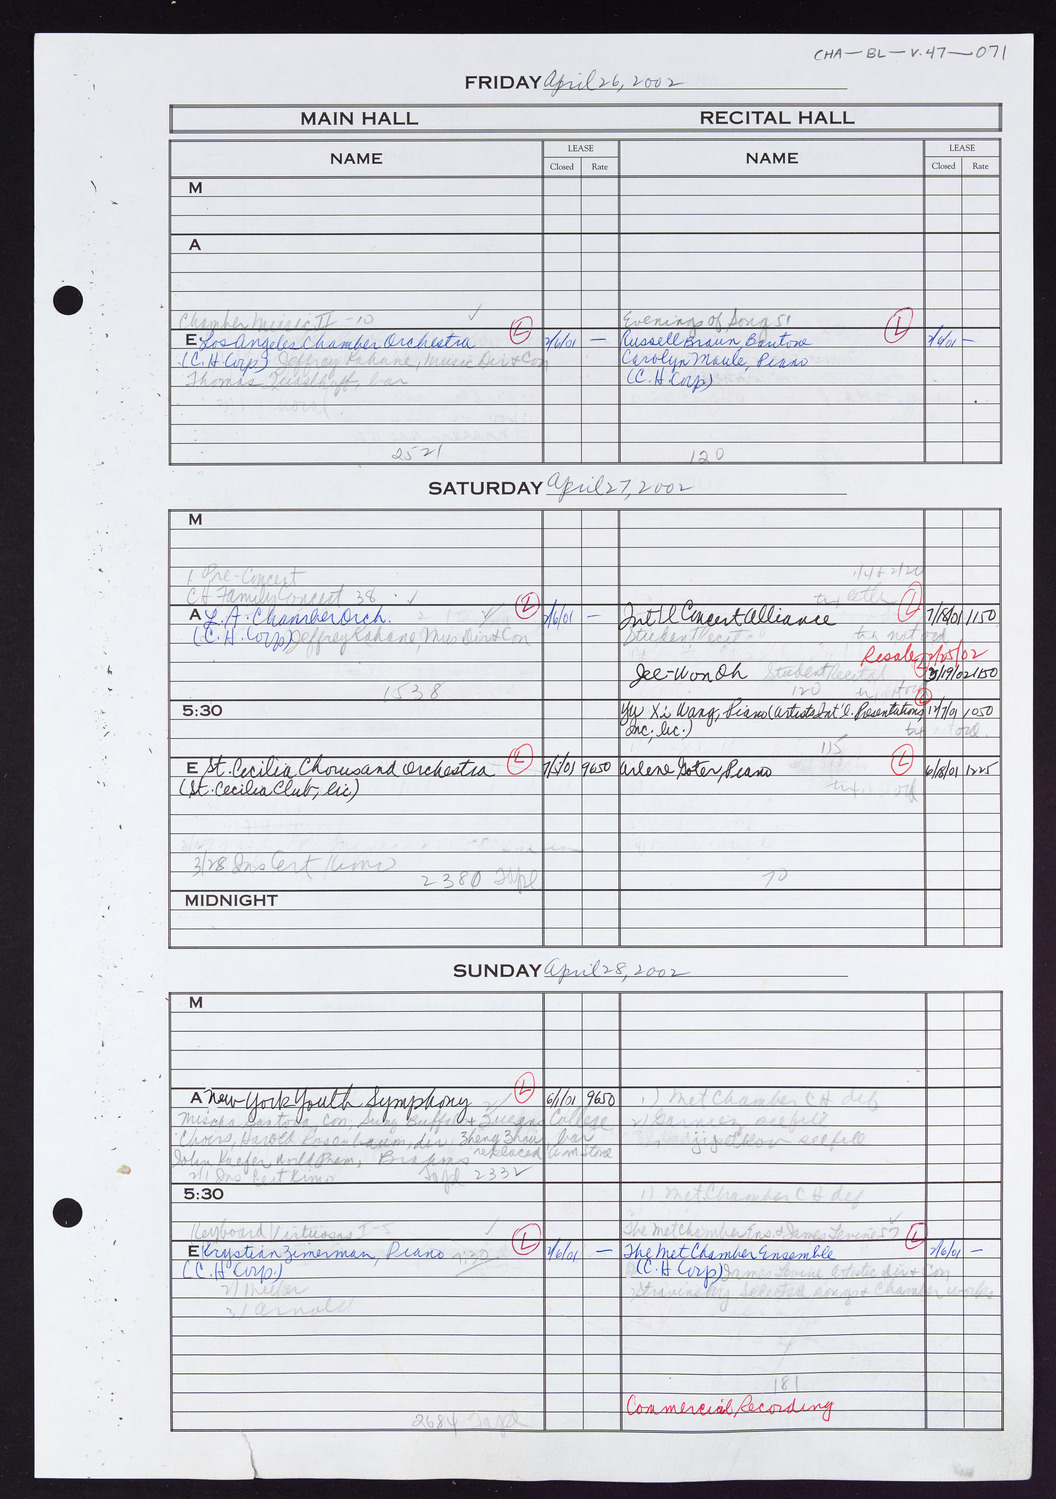 CHA-BL-V.47-071
FRIDAY April 26, 2002
MAIN HALL
RECITAL HALL
NAME
LEASE
Closed Rate
NAME
LEASE
Closed Rate
M
A
Chamber Music II - 10 ✓
Evenings of Song 51
E Los Angeles Chamber Orchestra (L) 2/6/01 —
Russell Braun Baritone (L) 2/6/01 —
(C.H. Corp) Jeffrey Kahane, Music Dir & Con
Carolyn Maule, Piano
Thomas
(C.H. Corp)
2521
120
SATURDAY April 27, 2002
M
1 Pre-Concert
CH Family Concert 38 ✓
A L.A. Chamber Orch. (L) 2/6/01 —
Int'l Concert Alliance (L) 7/18/01 1150
(C.H. Corp) Jeffrey Kahane, Mus Dir & Con
Student Recit.
Resale 2/25/02
Jee-Won Oh Student Recital (L) 3/19/02 1150
1538
120
5:30
Yu Xi Wang, Piano (Artists Int'l. Presentations, (L) 12/7/01 1050
Inc., lic.)
115
E St. Cecilia Chorus and Orchestra (L) 7/5/01 9650
Arlene Goter, Piano (L) 6/18/01 1225
(St. Cecilia Club, lic)
3/28 Ins Cert Kims
2380
70
MIDNIGHT
SUNDAY April 28, 2002
M
A New York Youth Symphony (L) 6/1/01 9650
1) Met Chamber CH def
Mischa Santora, Con, Suny Buffalo & Queens College
Choirs, Harold Rosenbaum, dir. Zheng Zhou, bar
John Kaefer World Prem, Brahms replaced
2/1 Ins Cert Kims
2332
5:30
1) Met Chamber CH def
Keyboard Virtuosos I - 5 ✓
The Met Chamber Ens. & James Levine 57 ✓
E Krystian Zimerman, Piano 7:30 (L) 2/6/01 —
The Met Chamber Ensemble (L) 2/6/01 —
(C.H. Corp.)
(C.H. Corp) James Levine Artistic Dir & Con
Stravinsky selected songs & chamber works
3) Arnold
181
Commercial Recording
2684